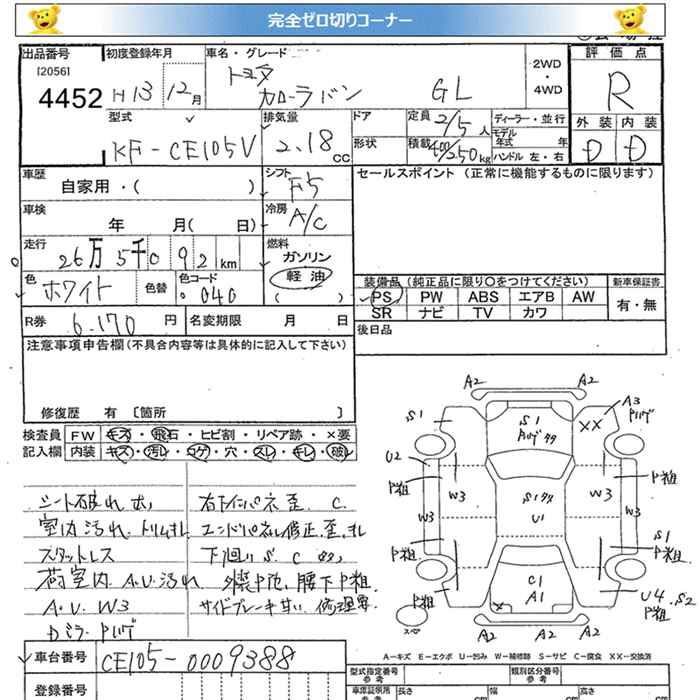 完全ゼロ切りコーナー
出品番号 初度登録年月 車名・グレード 評価点
[2056]
4452 H13 12月 トヨタ カローラバン GL 2WD・4WD R
型式 排気量 ドア 定員 2/5人 ディーラー・並行 外装 内装
KF-CE105V 2.18cc 形状 積載 400/250kg モデル年式 年 D D
ハンドル 左・右
車歴 シフト セールスポイント (正常に機能するものに限ります)
自家用・( ) F5
車検 冷房
年 月( 日) A/C
走行 燃料
26万5千092km ガソリン
色 色替 色コード 軽油 装備品 (純正品に限り○をつけてください) 新車保証書
ホワイト 040 ( ) PS PW ABS エアB AW 有・無
SR ナビ TV カワ
R券 6.170円 名変期限 月 日 後日品
注意事項申告欄(不具合内容等は具体的に記入して下さい)
修復歴 有 [箇所 ]
検査員 FW キズ・飛石・ヒビ割・リペア跡・×要
記入欄 内装 キズ・汚レ・コゲ・穴・スレ・キレ・破レ
A2 A2
S1 S1 A3
XX
U2
P粗 W3 S1 W3 P粗
W3 U1 W3
P粗 S1
P粗
C1
P粗 A1 U4 S2
P粗
A2 A2 A2
シート破れ 右下インパネ歪 C
室内汚れ エンドパネル修正 歪
スタットレス 下廻りS.C
荷室内 A.U.汚れ 腰下P粗
A.U.W3 サイドブレーキ甘い 修理要
A-キズ E-エクボ U-凹み W-補修跡 S-サビ C-腐食 XX-交換済
車台番号 CE105-0009388
登録番号
型式指定番号 参考 類別区分番号 参考
車庫証明用 参考 長さ cm 幅 cm 高さ cm